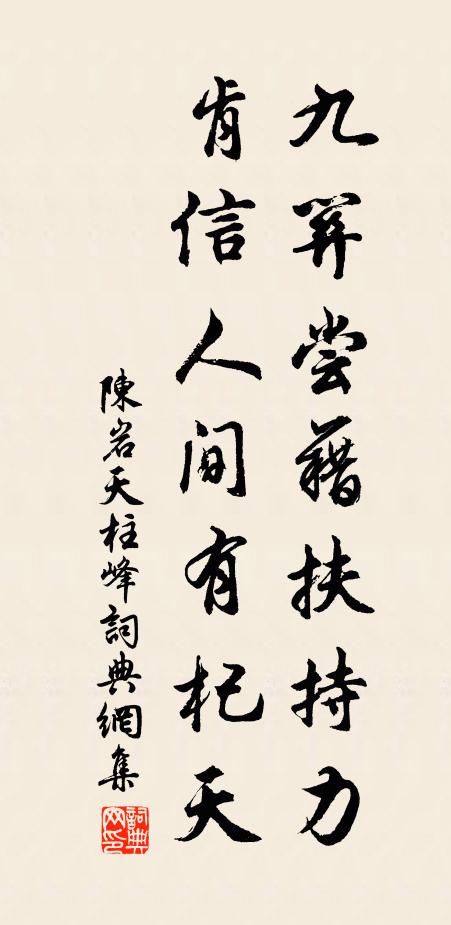 九關尝藉扶持力
肯信人间有杞天
陳岩天柱峰詞典網集
詞典网印